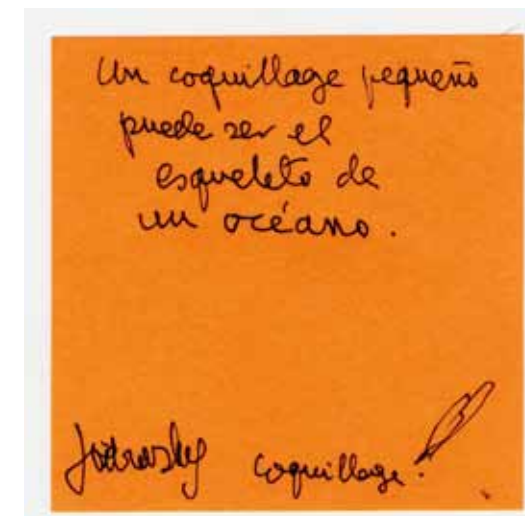 Un coquillage pequeño
puede ser el
esqueleto de
un océano.
coquillage!